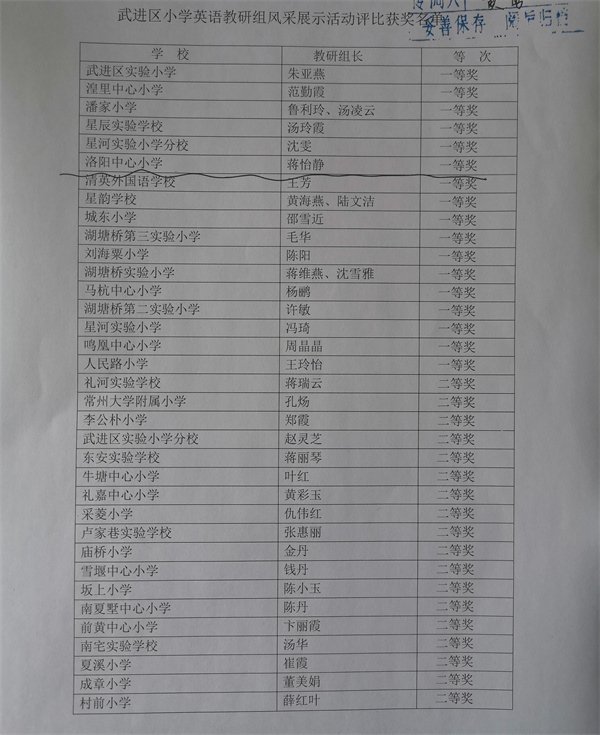 武进区小学英语教研组风采展示活动评比获奖名单
妥善保存 阅后归档
学 校 教研组长 等 次
武进区实验小学 朱亚燕 一等奖
湟里中心小学 范勤霞 一等奖
潘家小学 鲁利玲、汤凌云 一等奖
星辰实验学校 汤玲霞 一等奖
星河实验小学分校 沈雯 一等奖
洛阳中心小学 蒋怡静 一等奖
清英外国语学校 王芳 一等奖
星韵学校 黄海燕、陆文洁 一等奖
城东小学 邵雪近 一等奖
湖塘桥第三实验小学 毛华 一等奖
刘海粟小学 陈阳 一等奖
湖塘桥实验小学 蒋维燕、沈雪雅 一等奖
马杭中心小学 杨鹂 一等奖
湖塘桥第二实验小学 许敏 一等奖
星河实验小学 冯琦 一等奖
鸣凰中心小学 周晶晶 一等奖
人民路小学 王玲怡 一等奖
礼河实验学校 蒋瑞云 二等奖
常州大学附属小学 孔炀 二等奖
李公朴小学 郑霞 二等奖
武进区实验小学分校 赵灵芝 二等奖
东安实验学校 蒋丽琴 二等奖
牛塘中心小学 叶红 二等奖
礼嘉中心小学 黄彩玉 二等奖
采菱小学 仇伟红 二等奖
卢家巷实验学校 张惠丽 二等奖
庙桥小学 金丹 二等奖
雪堰中心小学 钱丹 二等奖
坂上小学 陈小玉 二等奖
南夏墅中心小学 陈丹 二等奖
前黄中心小学 卞丽霞 二等奖
南宅实验学校 汤华 二等奖
夏溪小学 崔霞 二等奖
成章小学 董美娟 二等奖
村前小学 薛红叶 二等奖